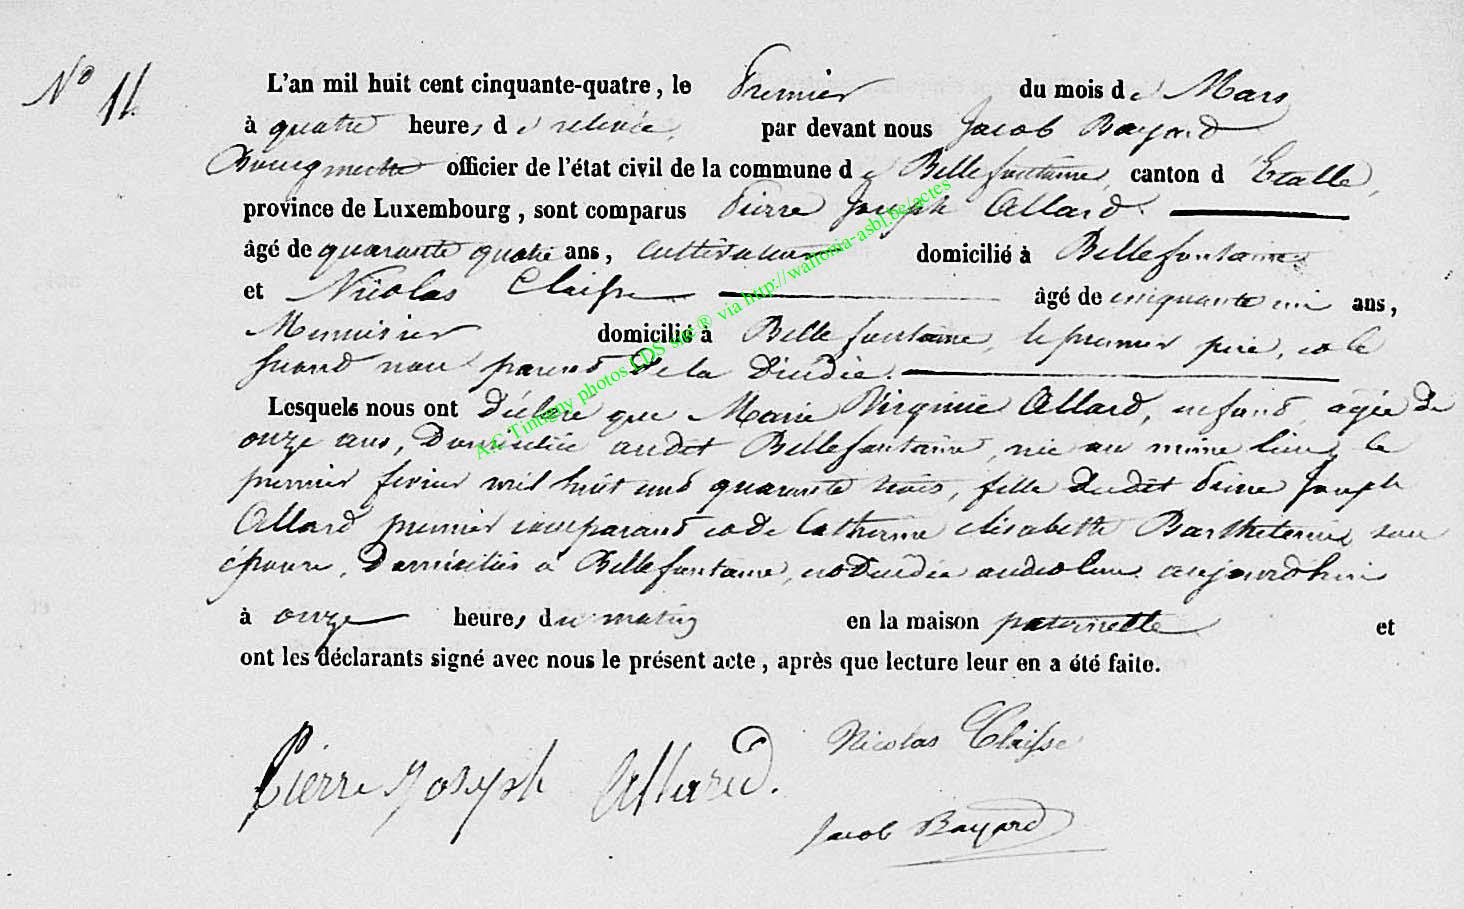 N° 11
L'an mil huit cent cinquante-quatre, le Premier du mois de Mars
à quatre heures de relevée, par devant nous Jacob Bayard
Bourgmestre officier de l'état civil de la commune de Bellefontaine, canton d'Etalle,
province de Luxembourg, sont comparus Pierre Joseph Allard.
âgé de quarante quatre ans, cultivateur domicilié à Bellefontaine
et Nicolas Claisse âgé de cinquante un ans,
Menuisier domicilié à Bellefontaine, le premier père, et le
second non parent de la Décédée.
Lesquels nous ont Déclaré que Marie Virginie Allard, enfant, âgée de
onze ans, Domiciliée audit Bellefontaine, née au même lieu, le
premier février mil huit cent quarante trois, fille dudit Pierre Joseph
Allard premier comparant et de Catherine Elisabette Barthelemie son
épouse, Domiciliés à Bellefontaine, est Décédée audit lieu aujourd'hui
à onze heures du matin en la maison paternelle et
ont les déclarants signé avec nous le présent acte, après que lecture leur en a été faite.
Pierre Joseph Allard.
Nicolas Claisse
Jacob Bayard
A.C Tintigny photos CDS site ® via http://wallonia-asbl.be/actes